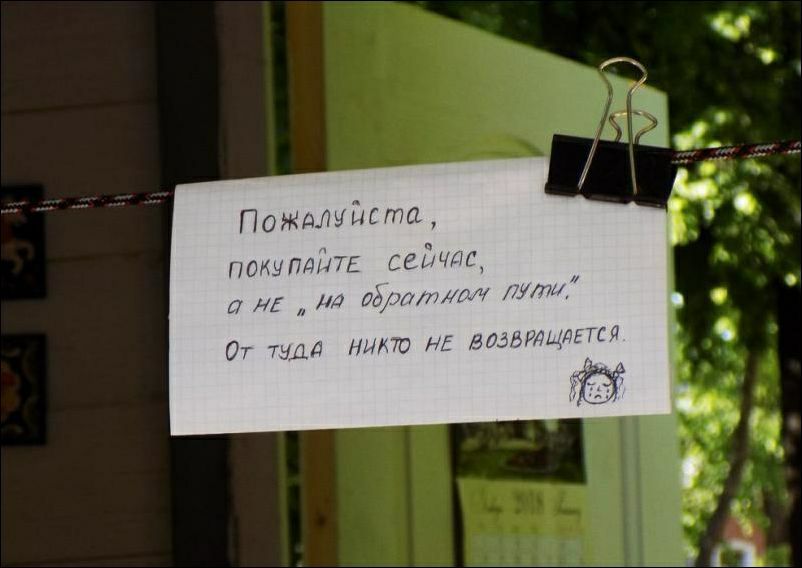 Пожалуйста,
покупайте сейчас,
а не „на обратном пути."
От туда никто не возвращается.
2018